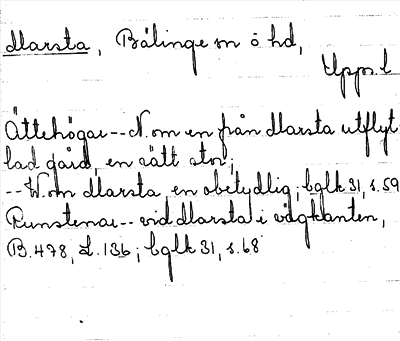 Marsta, Bälinge sn o hd,
Upps. l
Ättehögar--N. om en från Marsta utflyt-
tad gård, en rätt stor;
--N. om Marsta en obetydlig; bglk 31, s. 59
Runstenar--vid Marsta i vägkanten,
B. 478, L. 136; bglk 31, s. 68